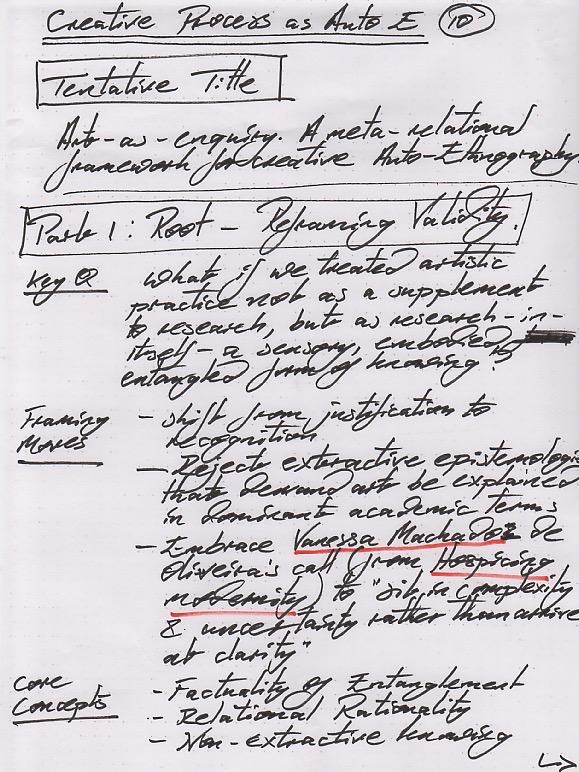 Creative Process as Auto E 10
Tentative Title
Arts-as-enquiry. A meta-relational
framework for creative Auto-Ethnography.
Part 1: Root - Reframing Validity.
Key Q
What if we treated artistic
practice not as a supplement
to research, but as research-in-
itself - a sensory, embodied,
entangled form of knowing?
Framing
Moves
- Shift from justification to
recognition
- Reject extractive epistemologies
that demand art be explained
in dominant academic terms
- Embrace Vanessa Machado de
Oliveira's call (from Hospicing
Modernity) to "sit in complexity
& uncertainty rather than arrive
at clarity"
Core
Concepts
- Factuality of Entanglement
- Relational Rationality
- Non-extractive knowing